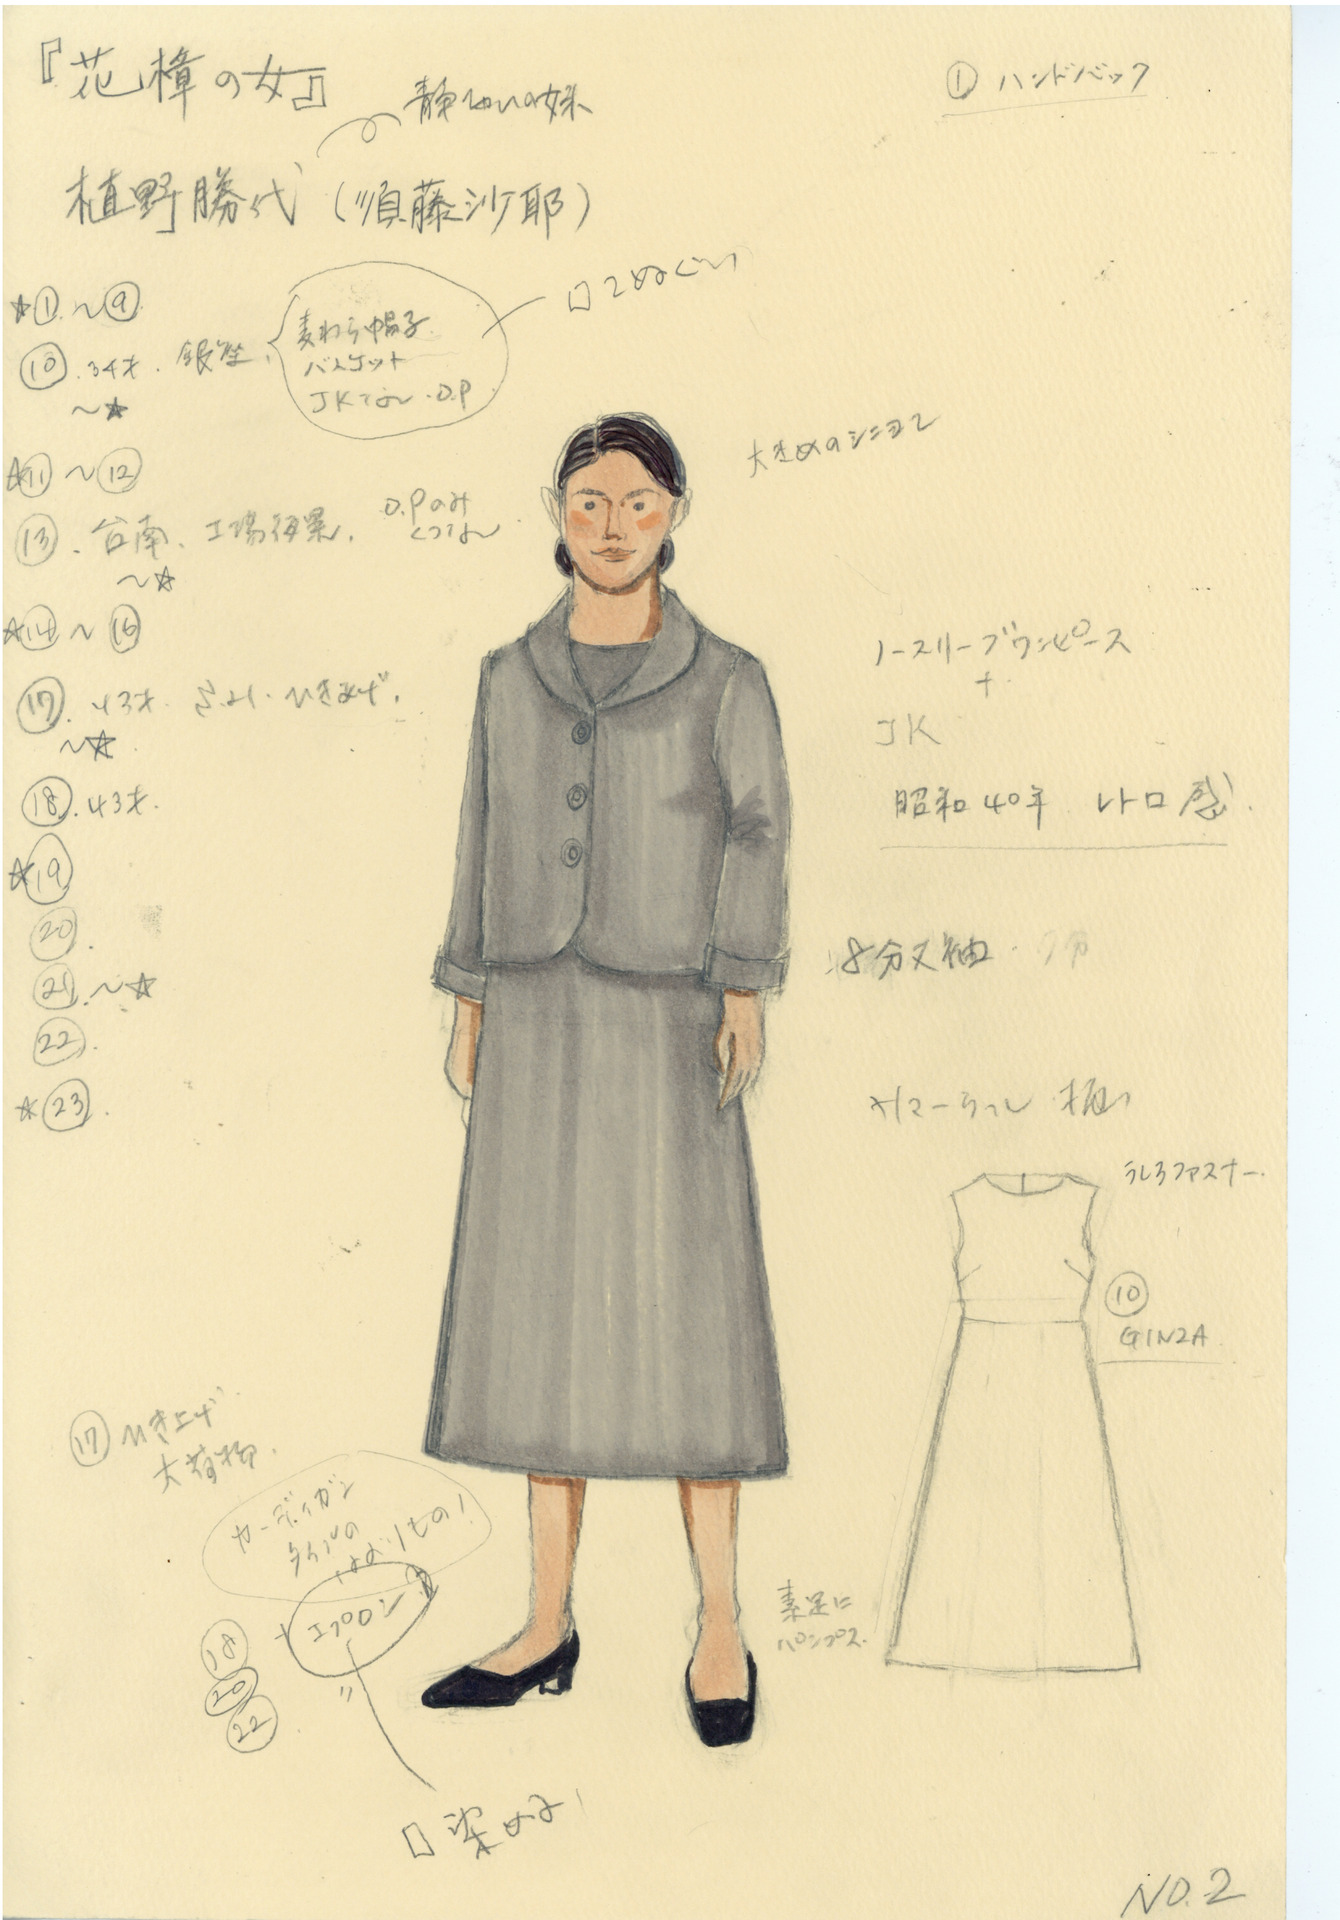 『花樟の女』
植野勝代(須藤沙耶)
① ハンドバック
★①~⑨
⑩.34才.銀座.
~★
麦わら帽子
バスケット
JKなし・O.P
★⑪~⑫
⑬.台南、工場
~★
O.Pのみ
くつなし
★⑭~⑯
⑰.43才
~★
⑱.43才.
★⑲
⑳.
㉑.~★
㉒.
★㉓.
大きめのシニヨン
ノースリーブワンピース
+
JK
昭和40年 レトロ感.
8分丈袖
うしろファスナー.
⑩
GINZA
⑰ ひき上げ
大荷物.
カーディガン
タイプの
はおりもの!
+エプロン
⑱
⑳
㉒
素足に
パンプス.
□ 染める!
NO.2